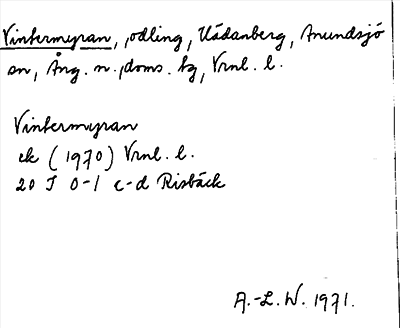 Vintermyran, odling, Uddanberg, Anundsjö
sn, Ång. n. doms. tg, Vrnl. l.
Vintermyran
ek (1970) Vrnl. l.
20 I 0-1 c-d Risbäck
A.-L. W. 1971.